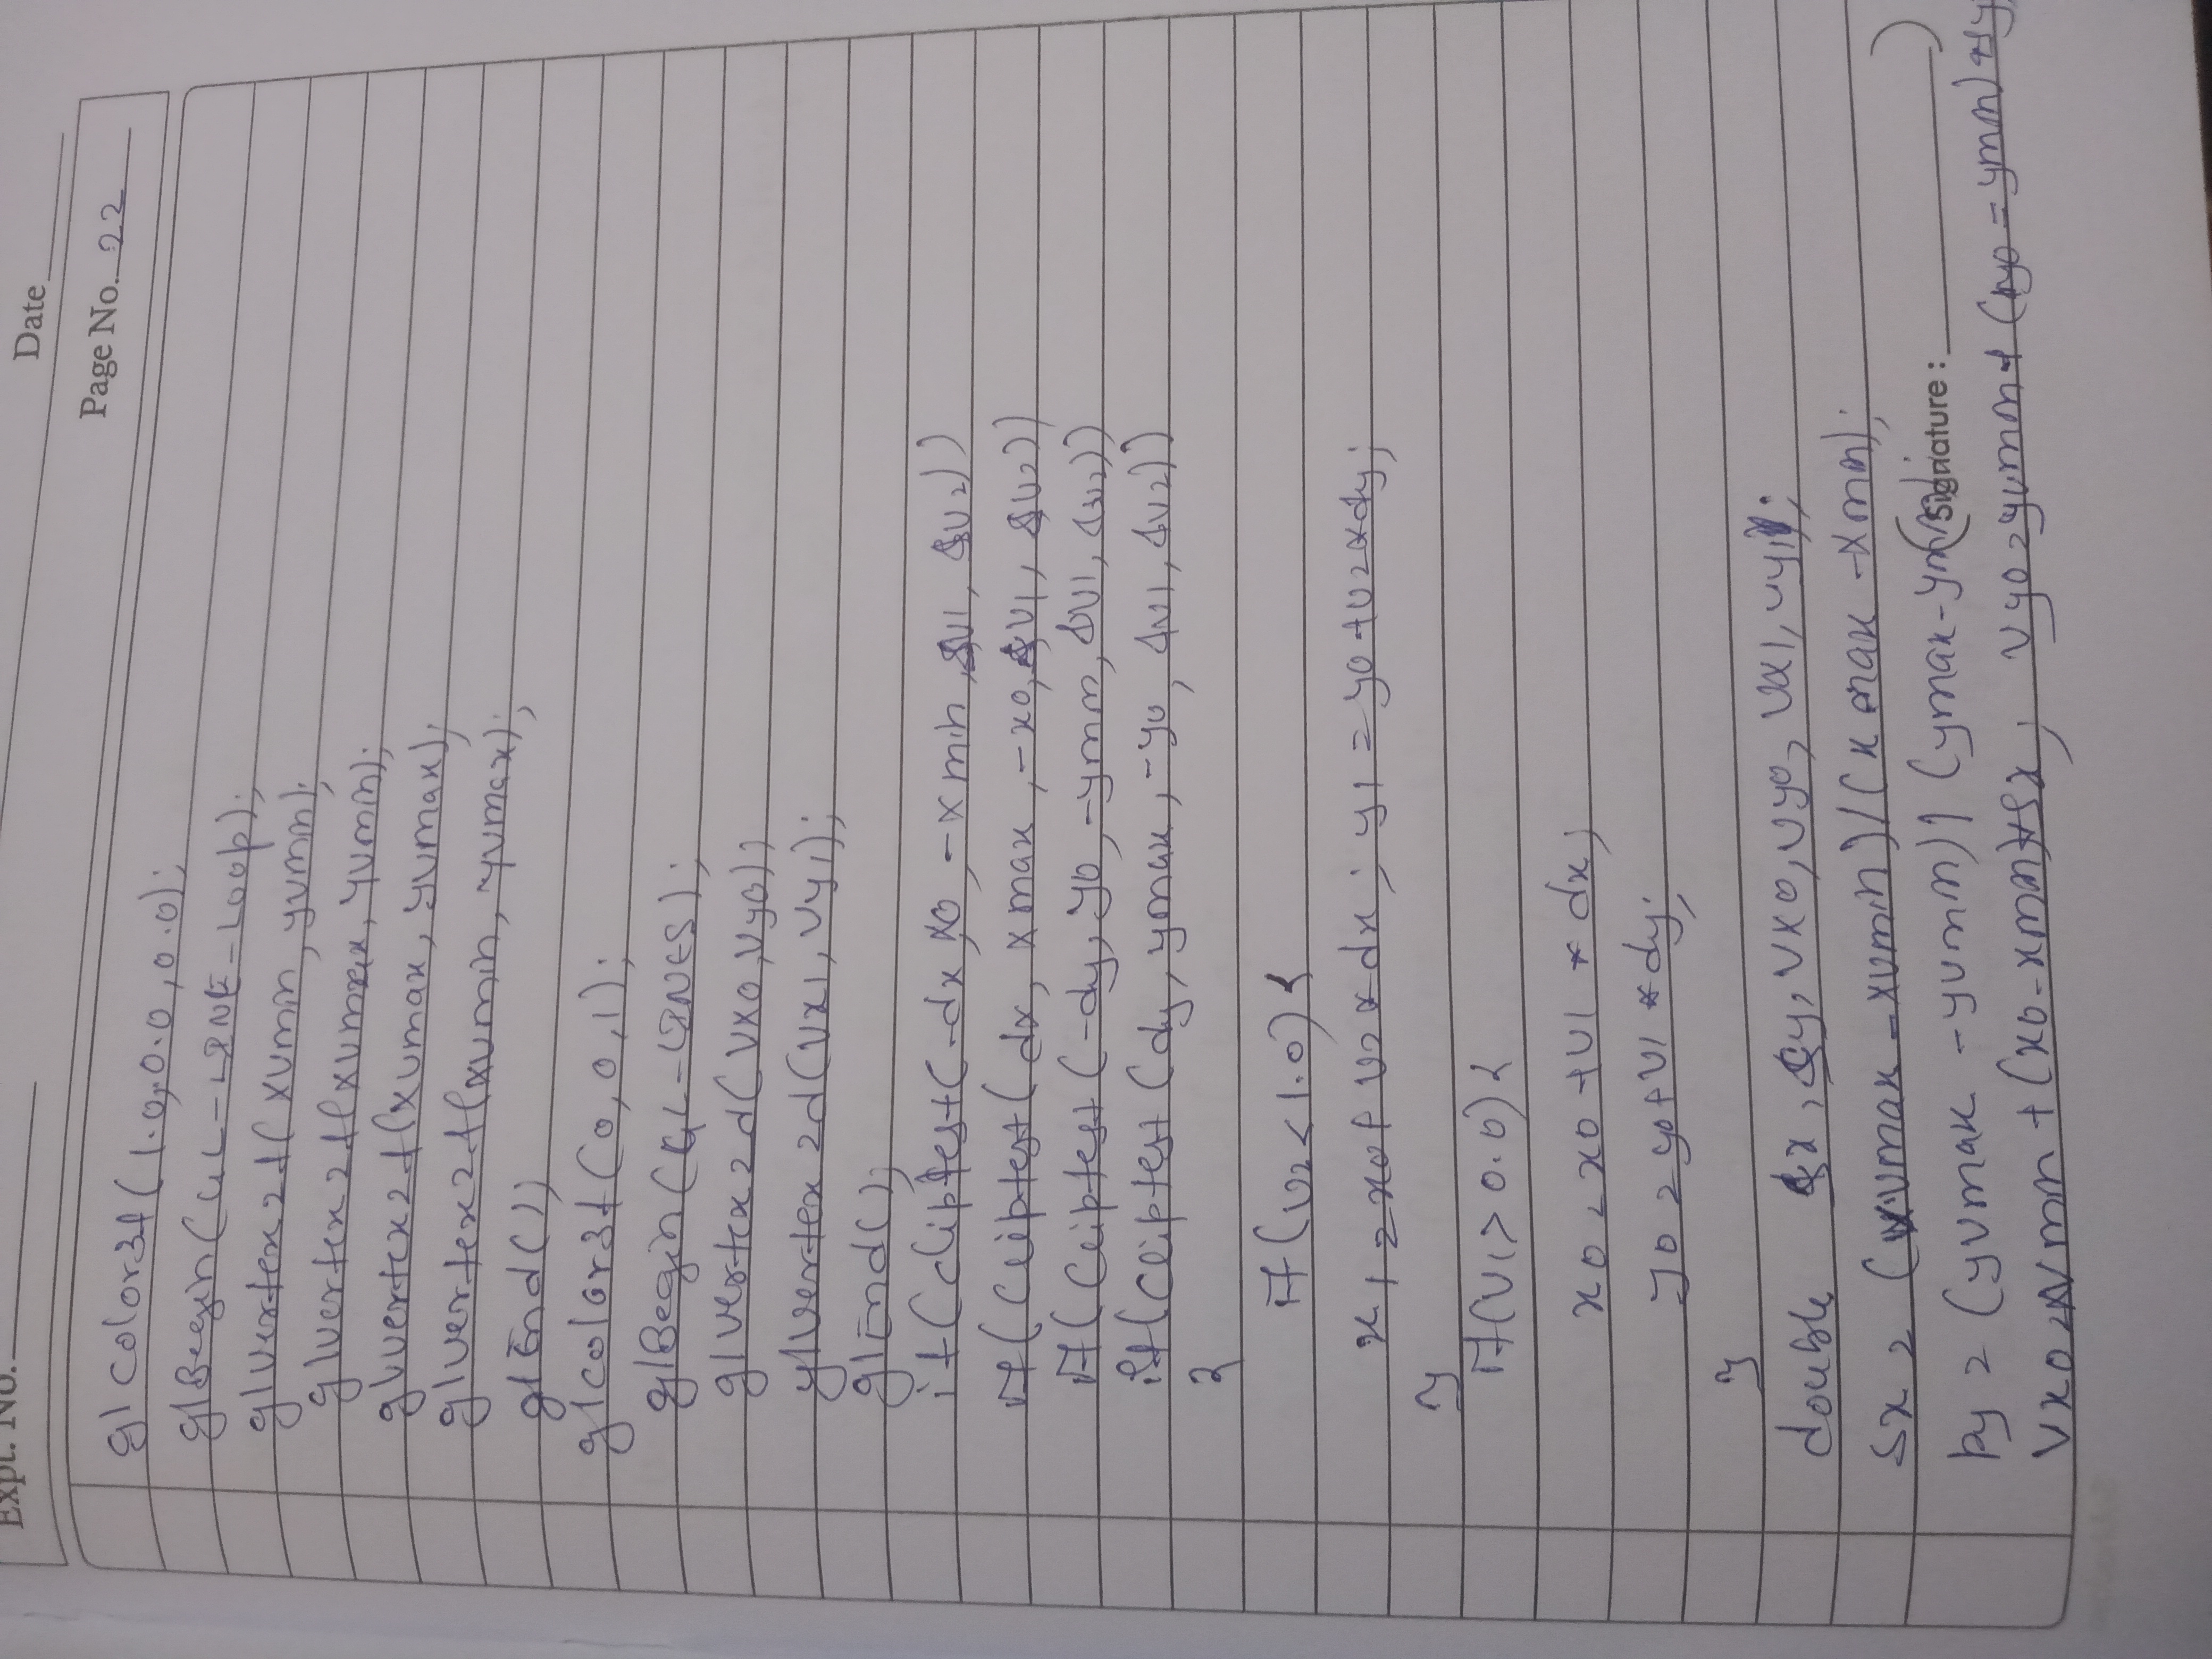 Expt. No.
Date
Page No. 22
glcolor3f(1.0,0.0,0.0);
glBegin(GL-LINE-Loop);
glvertex2f(xvmin,yvmin);
glvertex2f(xvmax,yvmin);
glvertex2f(xvmax,yvmax);
glvertex2f(xvmin,yvmax);
glEnd();
glcolor3f(0,0,1);
glBegin(GL-LINES);
glvertex2d(vx0,vy0);
glvertex2d(vx1,vy1);
glEnd();
if(cliptest(-dx,x0,-xmin,&u1,&u2))
if(cliptest(dx,xmax,-x0,&u1,&u2))
if(cliptest(-dy,y0,-ymin,&u1,&u2))
if(cliptest(dy,ymax,-y0,&u1,&u2))
{
if(u2<1.0){
x1=x0+u2*dx; y1=y0+u2*dy;
}
if(u1>0.0){
x0=x0+u1*dx;
y0=y0+u1*dy;
}
double sx,sy,vx0,vy0,vx1,vy1;
sx=(xvmax-xvmin)/(xmax-xmin);
(yvmax-yvmin)/(ymax-ymin);
(Signature: )
+(x0-xmin)*sx; vy0=yvmin+